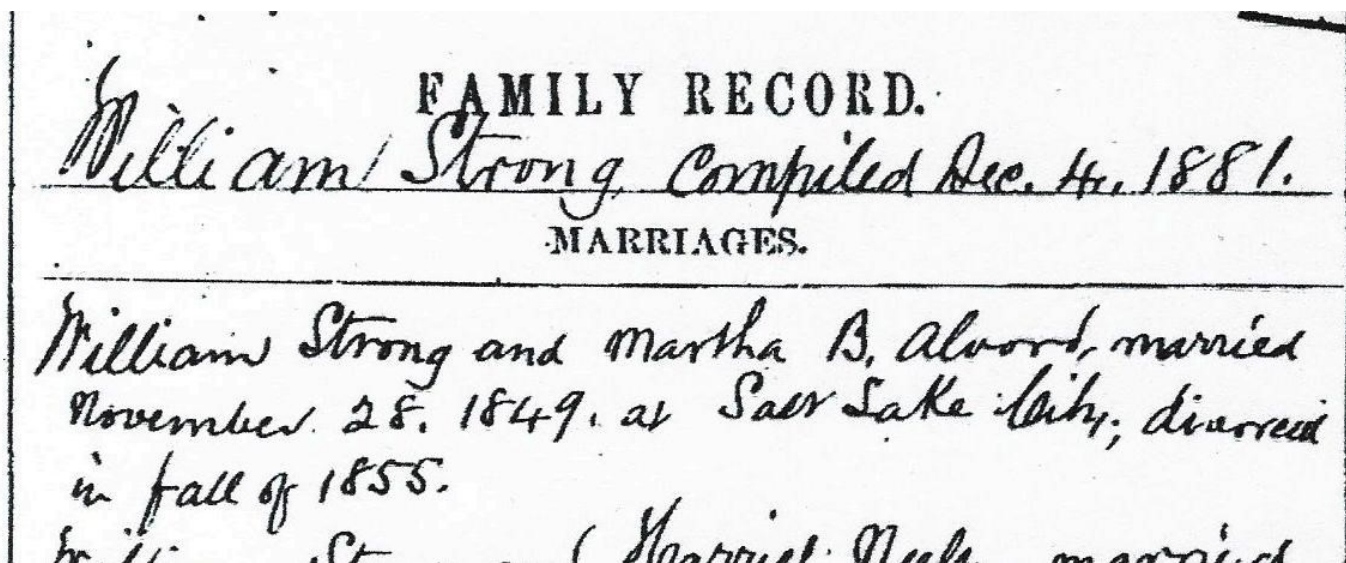 FAMILY RECORD.
William Strong, Compiled Dec. 4, 1881.
MARRIAGES.
William Strong and Martha B. Alvord, married
November 28. 1849. at Salt Lake City; divorced
in fall of 1855.
William Strong and Harriet married